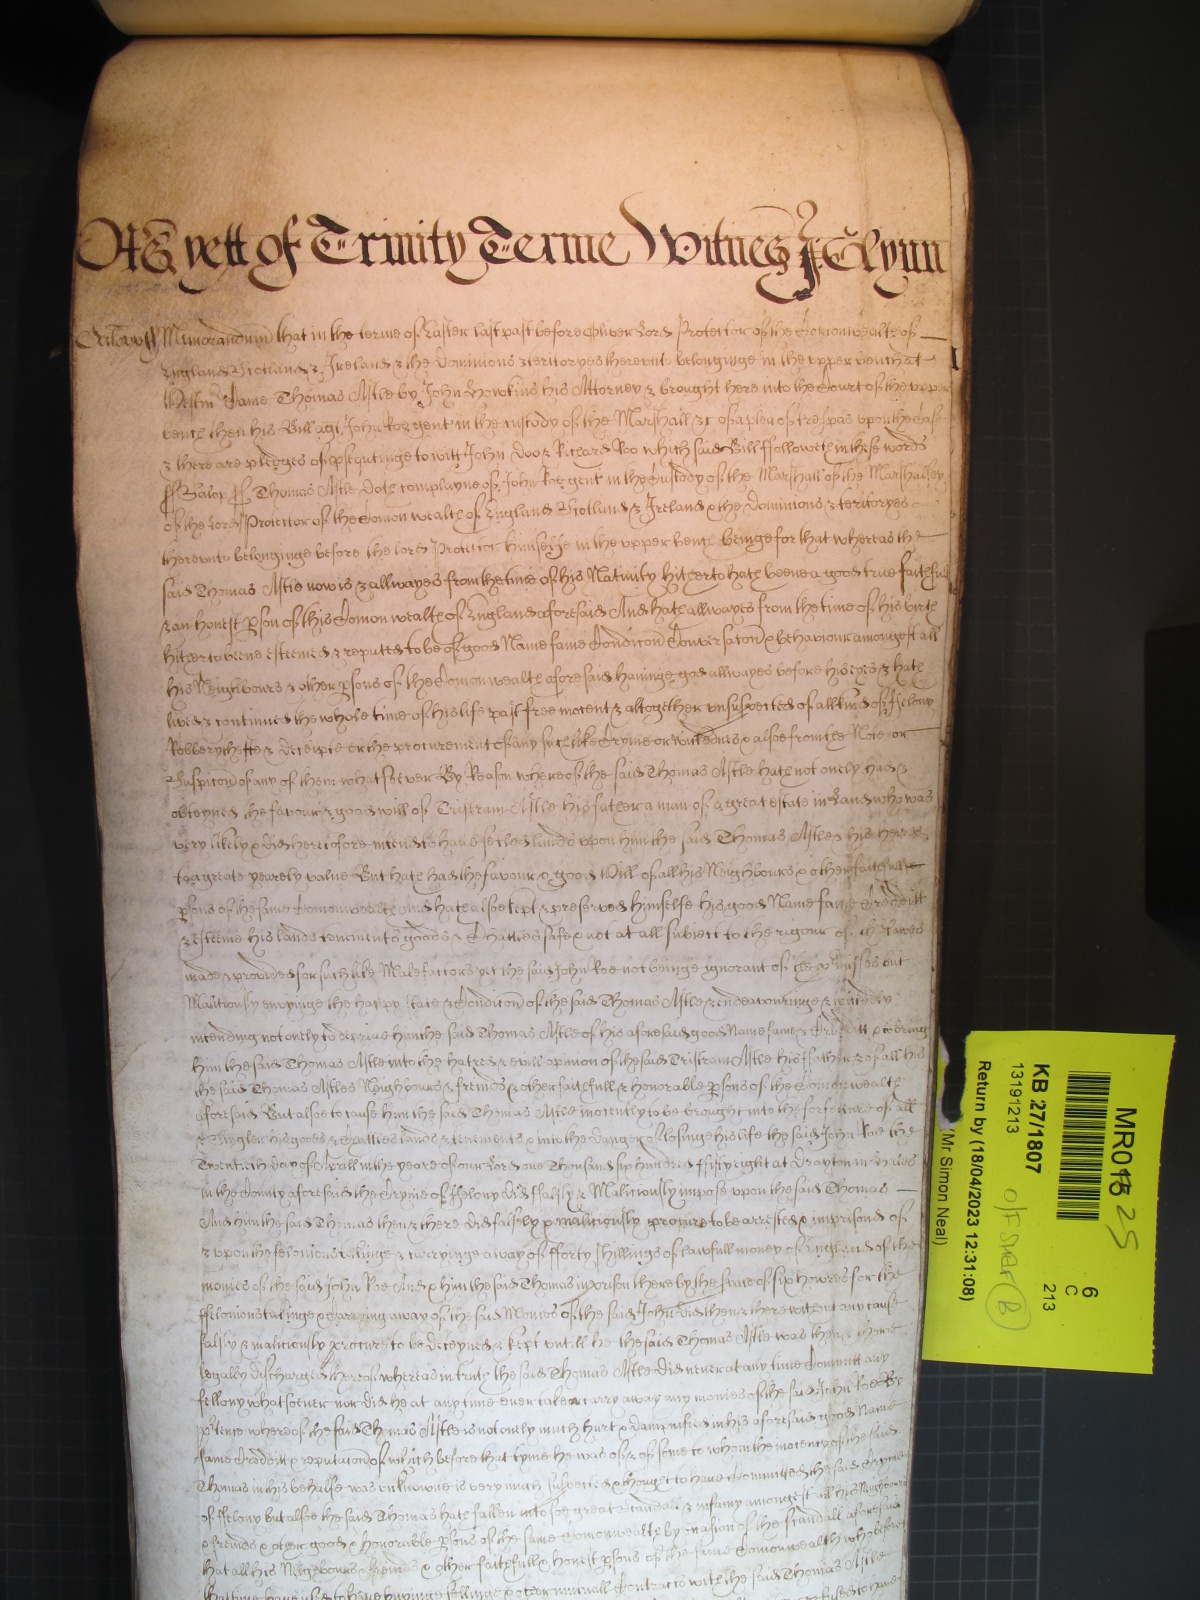 As yett of Trinity Terme Witnes J Glynn
Salopp ss Memorandum that in the terme of Easter last past before Oliver Lord Protector of the Comonwealth of
England Scotland & Ireland & the Dominions & territoryes thereunto belonginge in the upper bench att
Westmr Came Thomas Astle by John Howkins his Attorney & brought here into the Court of the upper
bench then his Bill agt John Roe gent in the custody of the Marshall &c of a plea of trespas upon the Case
& there are pledges of psequtinge to witt John Doo & Richard Roo which said Bill ffolloweth in these words
ss Salop ss Thomas Astle doth complayne of John Roe gent in the Custody of the Marshall of the Marshalsey
of the Lord Protector of the Comon wealth of England Scotland & Ireland & the Dominions & territoryes
thereunto belonginge before the lord Protector himselfe in the upper bench beinge for that whereas the
said Thomas Astle now is & allwayes from the time of his Nativity hitherto hath beene a good true faithfull
& an honest pson of this Comon wealth of England aforesaid And hath allwayes from the time of his birth
hitherto beene esteemed & reputed to be of good Name fame Condicon Conversaton & behaviour amongest all
his Neighbours & other psons of the Comon wealth aforesaid haninge god allwayes before his eyes & hath
lived & continued the whole time of his life past free inocent & altogether unsuspected of all kind of ffelony
Robbery thefte & deceipte or the procurement of any such like Cryme or wickednes & alsoe from the Note or
Suspicon of any of them whatsoever By Reason whereof the said Thomas Astle hath not onely had &
obteyned the favour & good will of Tristram Astle his father a man of a great estate in Land who was
very likely & did heretofore intend to have setled lands upon him the said Thomas Astle & his heires
to a greate yearely value But hath had the favour & good Will of all his Neighbours & other faithfull
psons of the same Comonwealth And hath alsoe kept & preserved himselfe his good Name fame Creditt
& esteeme his lands tenements goods & Chattles safe & not at all subiect to the rigour of the lawes
made & provided for such like Malefactors yet the said John Roe not beinge ignorant of the pmisses but
Maliciously envyinge the happy state & Condicon of the said Thomas Astle & endeavouringe & wickedly
intending not onely to deprive him the said Thomas Astle of his aforesaid good Name fame & Creditt & to bring
him the said Thomas Astle into the hatred & evill opinion of the said Tristram Astle his father & of all his
the said Thomas Astles Neighbours & freinds & other faithfull & honorable psons of the Comonwealth
aforesaid But alsoe to cause him the said Thomas Astle inocently to be brought into the forfeiture of all
& Singler his goods & Chattles lands & tenements & into the danger of losinge his life the said John Roe the
Twentieth day of Aprill in the yeare of our Lord one Thousand six hundred ffifty eight at Drayton in Hales
in the County aforesaid the Cryme of ffelony did falsly & Maliciously impose upon the said Thomas
And him the said Thomas then & there did falsely & maliciously procure to be arrested & imprisond of
& upon the felonious takinge & carryinge away of fforty shillings of lawfull money of England of the
monies of the said John Roe And him the said Thomas in prison there by the space of six howres for the
ffelonious takinge & carrying away of the said Monies of the said John did then & there without any cause
falsly & maliciously procure to be deteyned & kept untill he the said Thomas Astle was then & there
legally discharged thereof whereas in truth the said Thomas Astle did never at any time Committ any
fellony whatsoever nor did he at any time ever take or carry away any monies of the said John Roe By
ptence whereof the said Thomas Astle is not onely much hurt & damnified in his aforesaid good Name
fame Creditt & reputation of which before that tyme he was of & of some to whom the inocency of the said
Thomas in this behalfe was unknowne is very much suspected & thought to have Committed the said Cryme
of ffelony but alsoe the said Thomas hath fallen into soe great Scandall & infamy amongest all his Neighbours
& freinds & other good & honorable psons of the same Comonwealth by occasion of the scandall aforesaid
that all his Neighbours freinds & other faithfull & honest psons of the same Comonwealth who before
that time have used to have buyinge sellinge & other mutuall Contracts with the said Thomas Astle
MR015 25
6
C
213
KB 27/1807
13191213
Return by (18/04/2023 12:31:08)
(Mr Simon Neal)